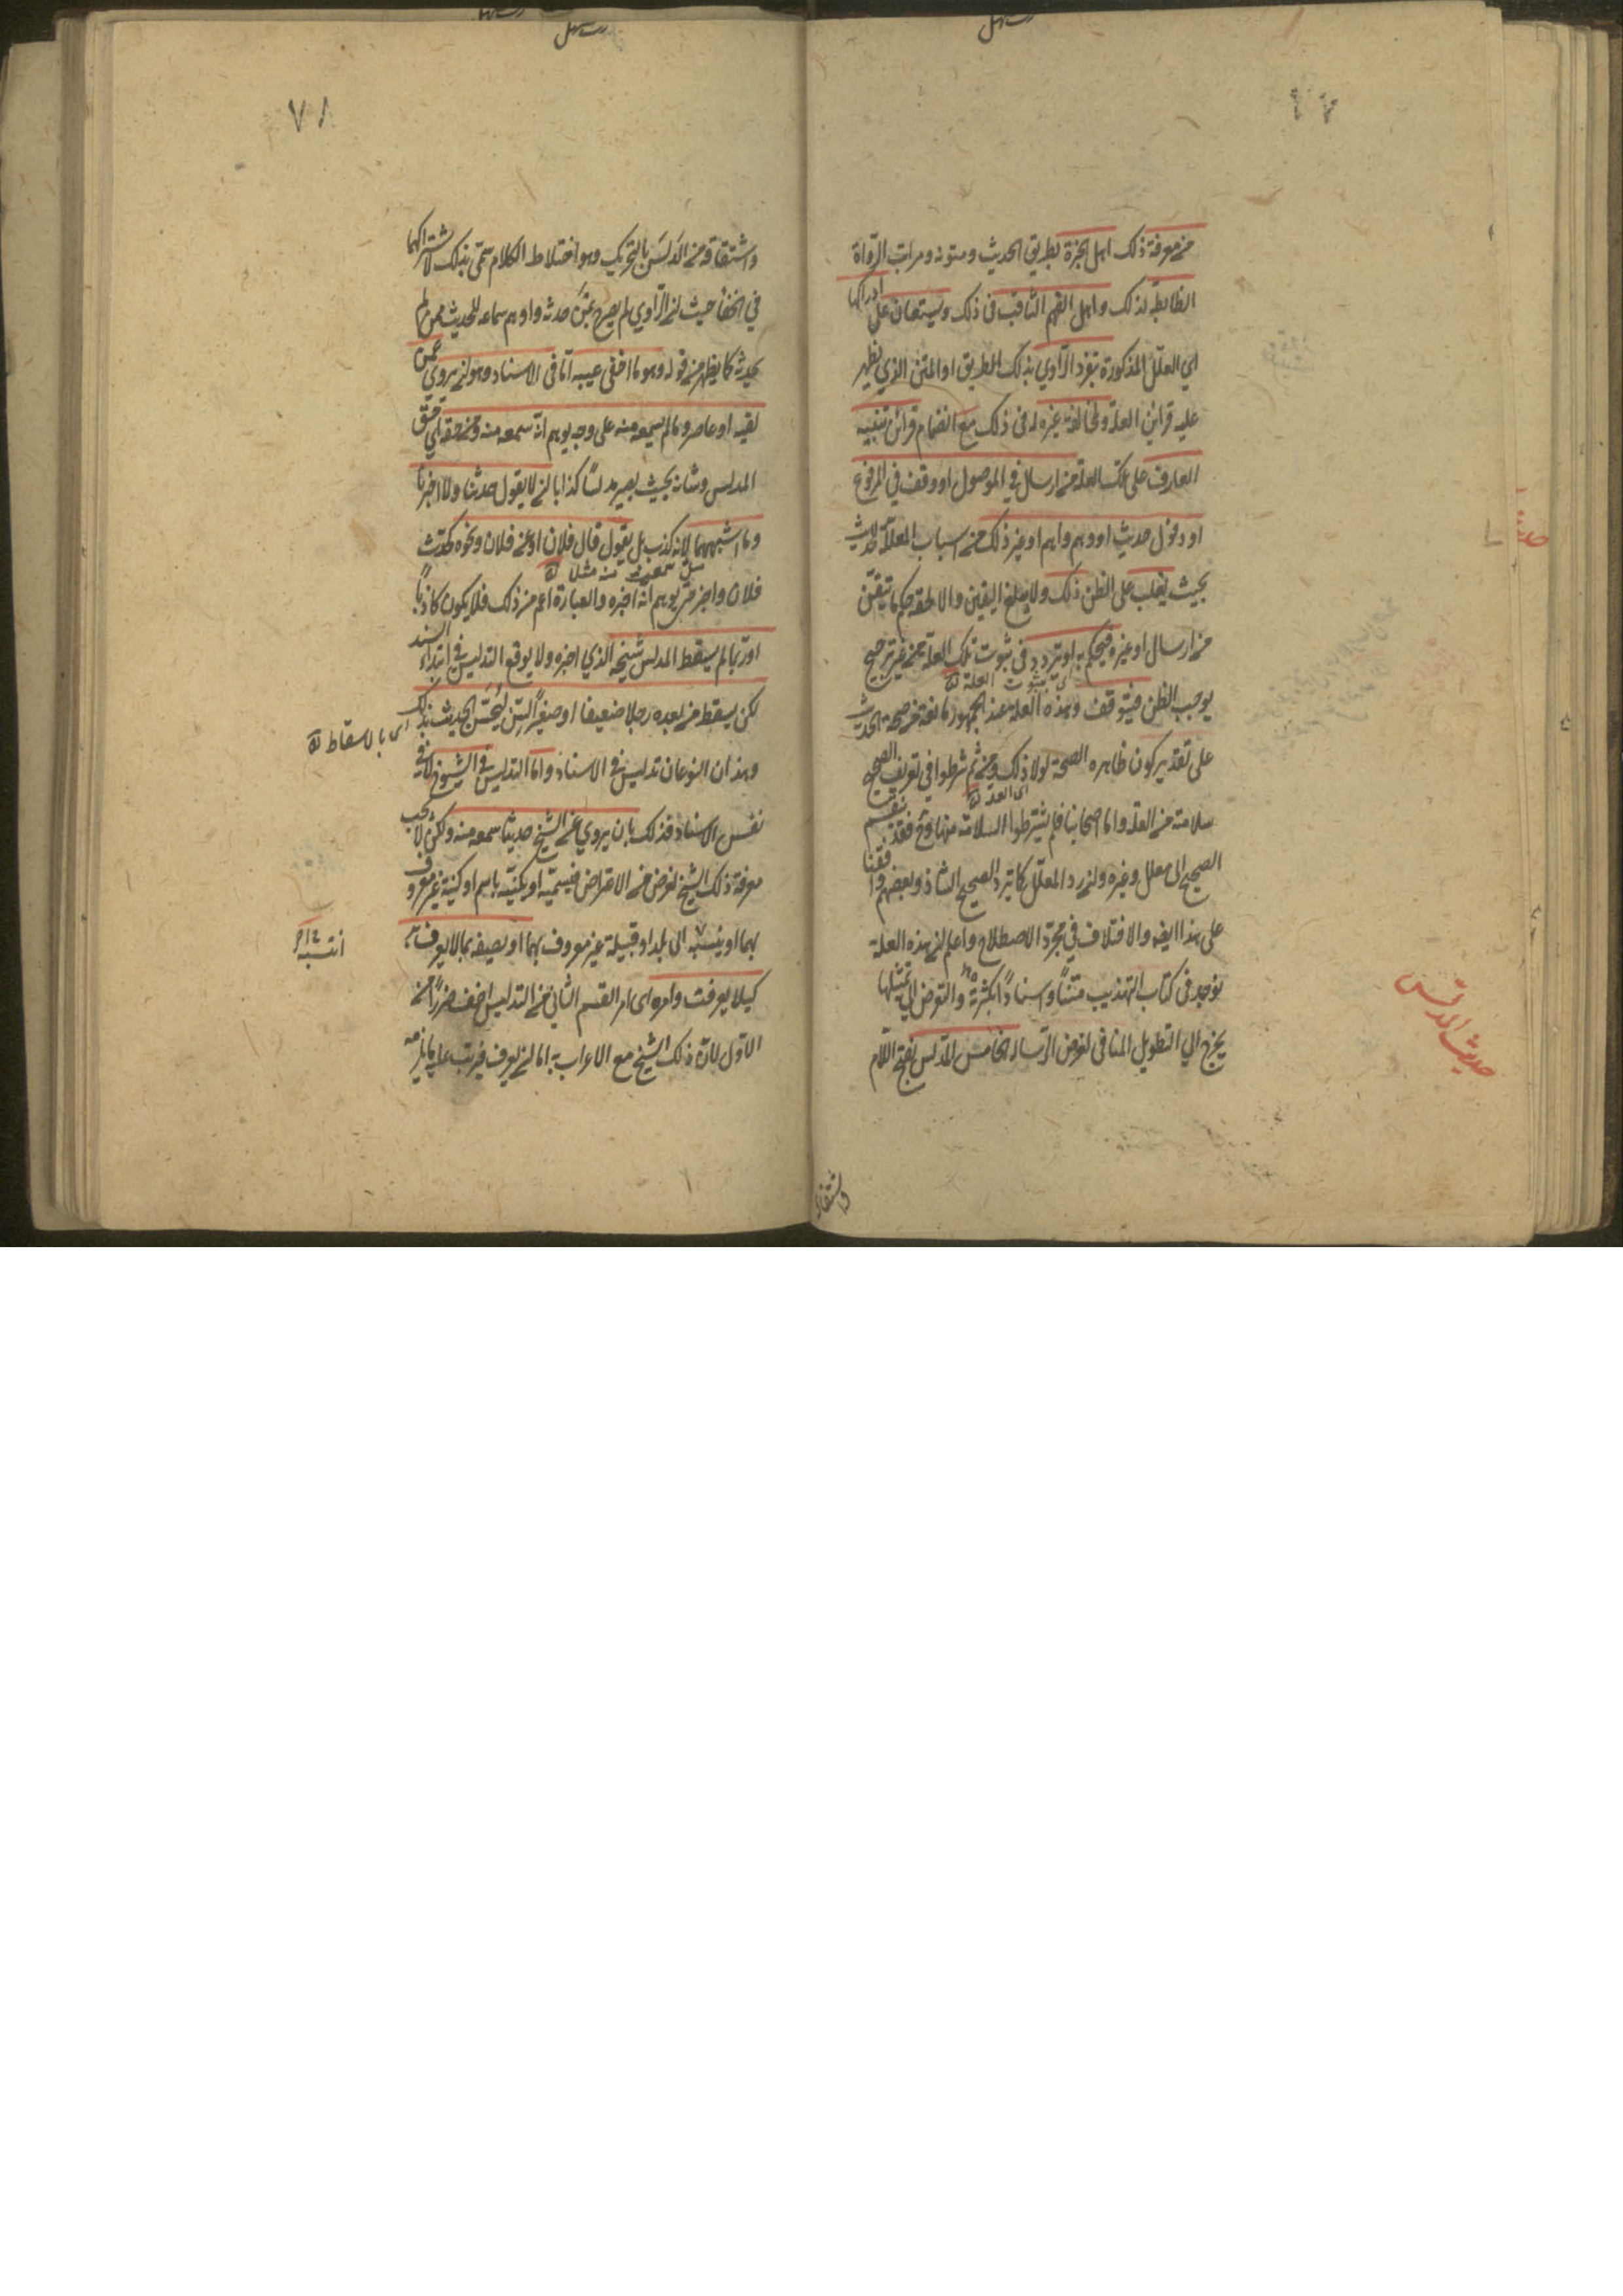 من معرفة ذلك اهل الخبرة بطريق الحديث ومتونه ومراتب الرواة
الضابطة لذلك واهل الفهم الثاقب في ذلك ويستعان على ادراكها
اي العلل المذكورة بتفرد الراوي بذلك الطريق او المتن الذي يظهر
عليه قرائن العلة وبمخالفة غيره له في ذلك مع انضمام قرائن تنبه
العارف على تلك العلة من ارسال في الموصول او وقف في المرفوع
او دخول حديث او وهم واهم او غير ذلك من اسباب المعللة للحديث
بحيث يغلب على الظن ذلك ولا يبلغ اليقين والا لحقه حكم ما تيقن
من ارسال او غيره فيحكم به او يتردد في ثبوت تلك العلة من غير ترجيح
اى بثبوت العلة
يوجب الظن فيتوقف وهذه العلة عند الجمهور مانعة من صحة الحديث
على تقدير كون ظاهره الصحة لولا ذلك ومن ثم شرطوا في تعريف الصحيح
اى العلة
سلامته من العلة واما اصحابنا فلم يشترطوا السلامة منها وح فقد ينقسم
الصحيح الى معلل وغيره وان رد المعلل كما يرد الصحيح الشاذ وبعضهم وافقنا
على هذا ايضا والاختلاف في مجرد الاصطلاح واعلم ان هذه العلة
توجد في كتاب التهذيب متنا واسنادا بكثرة والتعرض الى تمثيلها
يخرج الى التطويل المنافي لغرض الرسالة الخامس المدلس بفتح اللام
حديث المدلس
واشتقاقه
٧٨
واشتقاقه من الدلس بالتحريك وهو اختلاط الظلام سمي بذلك لاشتراكهما
في الخفاء حيث ان الراوي لم يصرح بمن حدثه واوهم سماعه للحديث ممن لم
يحدثه كما يظهر من قوله وهو ما اخفى عيبه اما في الاسناد وهو ان يروي عمن
لقيه او عاصره ما لم يسمعه منه على وجه يوهم انه سمعه منه ومن حقه اي حق
المدلس وشانه بحيث يصير مدلسا لا كذابا ان لا يقول حدثنا ولا اخبرنا
وما اشبههما لانه كذب بل يقول قال فلان او عن فلان ونحوه كحدث
فلان واخبر حتى يوهم انه اخبره والعبارة اعم من ذلك فلا يكون كاذبا
او ربما لم يسقط المدلس شيخه الذي اخبره ولا يوقع التدليس في ابتداء السند
لكن يسقط من بعده رجلا ضعيفا او صغير السن ليحسن الحديث بذلك
اى بالاسقاط
وهذان النوعان تدليس في الاسناد واما التدليس في الشيوخ لا في
نفس الاسناد فذلك بان يروي عن الشيخ حديثا سمعه منه ولكن لا يحب
معرفة ذلك الشيخ لغرض من الاغراض فيسميه او يكنيه باسم او كنية غير معروف
بهما او ينسبه الى بلد او قبيلة غير معروف بهما او يصفه بما لا يعرف به
كيلا يعرف وامره اى امر القسم الثاني من التدليس اخف ضررا من
الاول لان ذلك الشيخ مع الاعراب به اما ان يعرف فيرتب عليه ما يلزمه